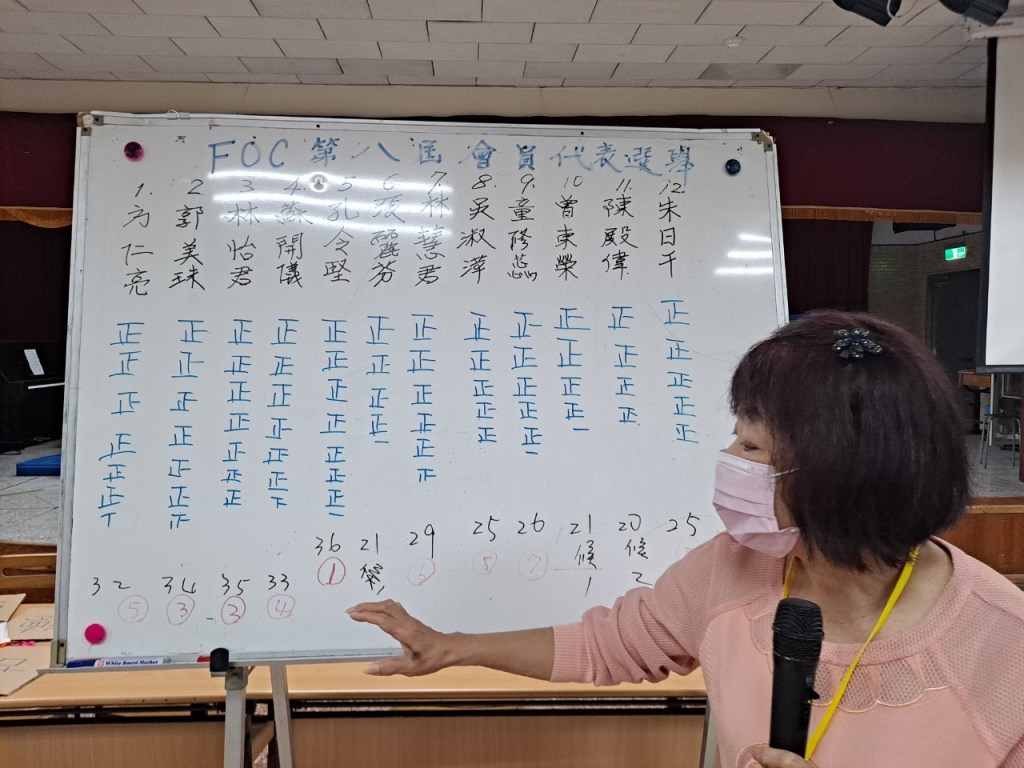 FOC 第八屆會員代表選舉
1. 方仁亮
2 郭美珠
3 林怡君
4. 蘇開儀
5 孔令堅
6 張麗芬
7. 林慧君
8. 吳淑萍
9. 童修蕊
10 曾東榮
11. 陳殿偉
12 朱日千
正正正正正正丅
正正正正正正
正正正正正正正
正正正正正正
正正正正正正正一
正正正正一
正正正正正
正正正正正
正正正正正一
正正正正一
正正正正
正正正正正
32 34 35 33 36 21 29 25 26 21 20 25
⑤ ③ ② ④ ① ⑥ ⑧ ⑦ 候1 候2
White Board Marker